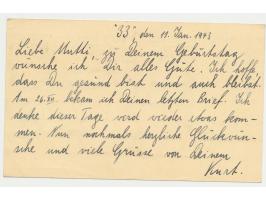 "33", den 11. Jan. 1943
Liebe Mutti, zu Deinem Geburtstag
wünsche ich Dir alles Gute. Ich hoffe
dass Du gesund bist und auch bleibst.
Am 24.XII bekam ich Deinen letzten Brief. Ich
denke dieser Tage wird wieder etwas kom-
men. Nun nochmals herzliche Glückwün-
sche und viele Grüsse von Deinem
Kurt.